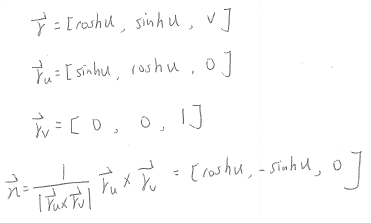 r⃗ = [coshu, sinhu, v]
r⃗u = [sinhu, coshu, 0]
r⃗v = [0, 0, 1]
n⃗ = 1/|r⃗u×r⃗v| r⃗u × r⃗v = [coshu, -sinhu, 0]